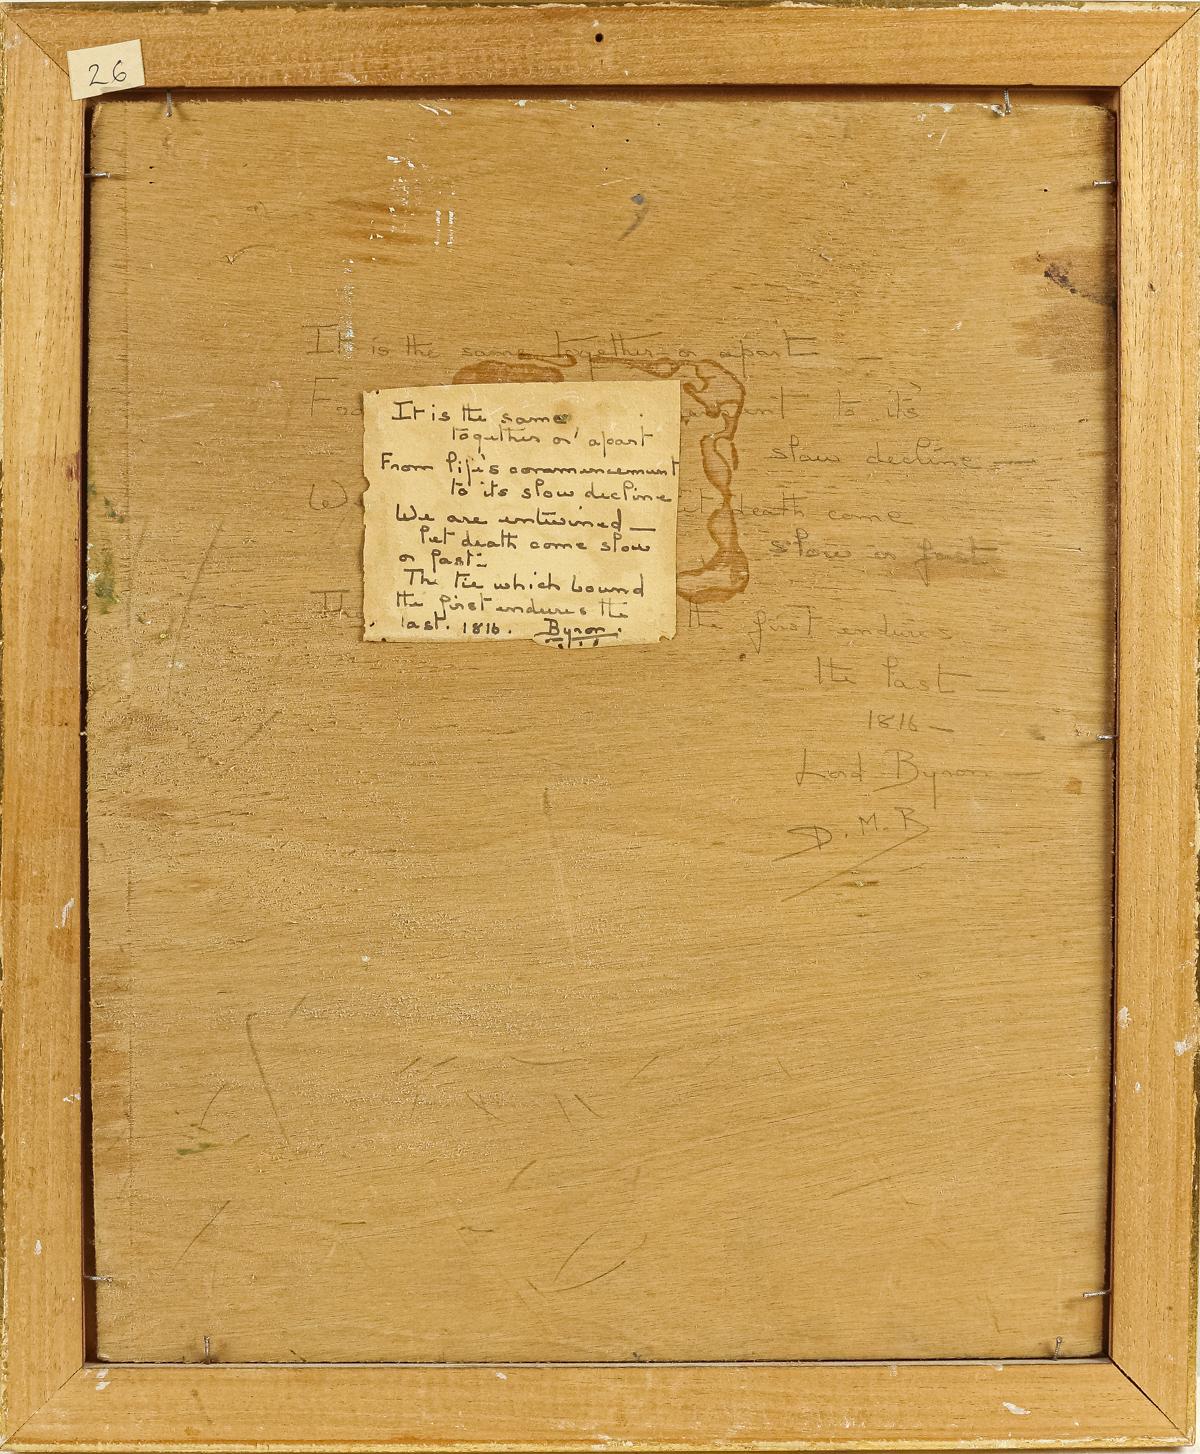 26
It is the same together or apart —
to its
slow decline —
death come
slow or fast
the first endures
the last —
1816 —
Lord Byron —
D.M.B
It is the same
together or apart
From life's commencement
to its slow decline
We are entwined —
let death come slow
or fast:
The tie which bound
the first endures the
last. 1816. Byron.